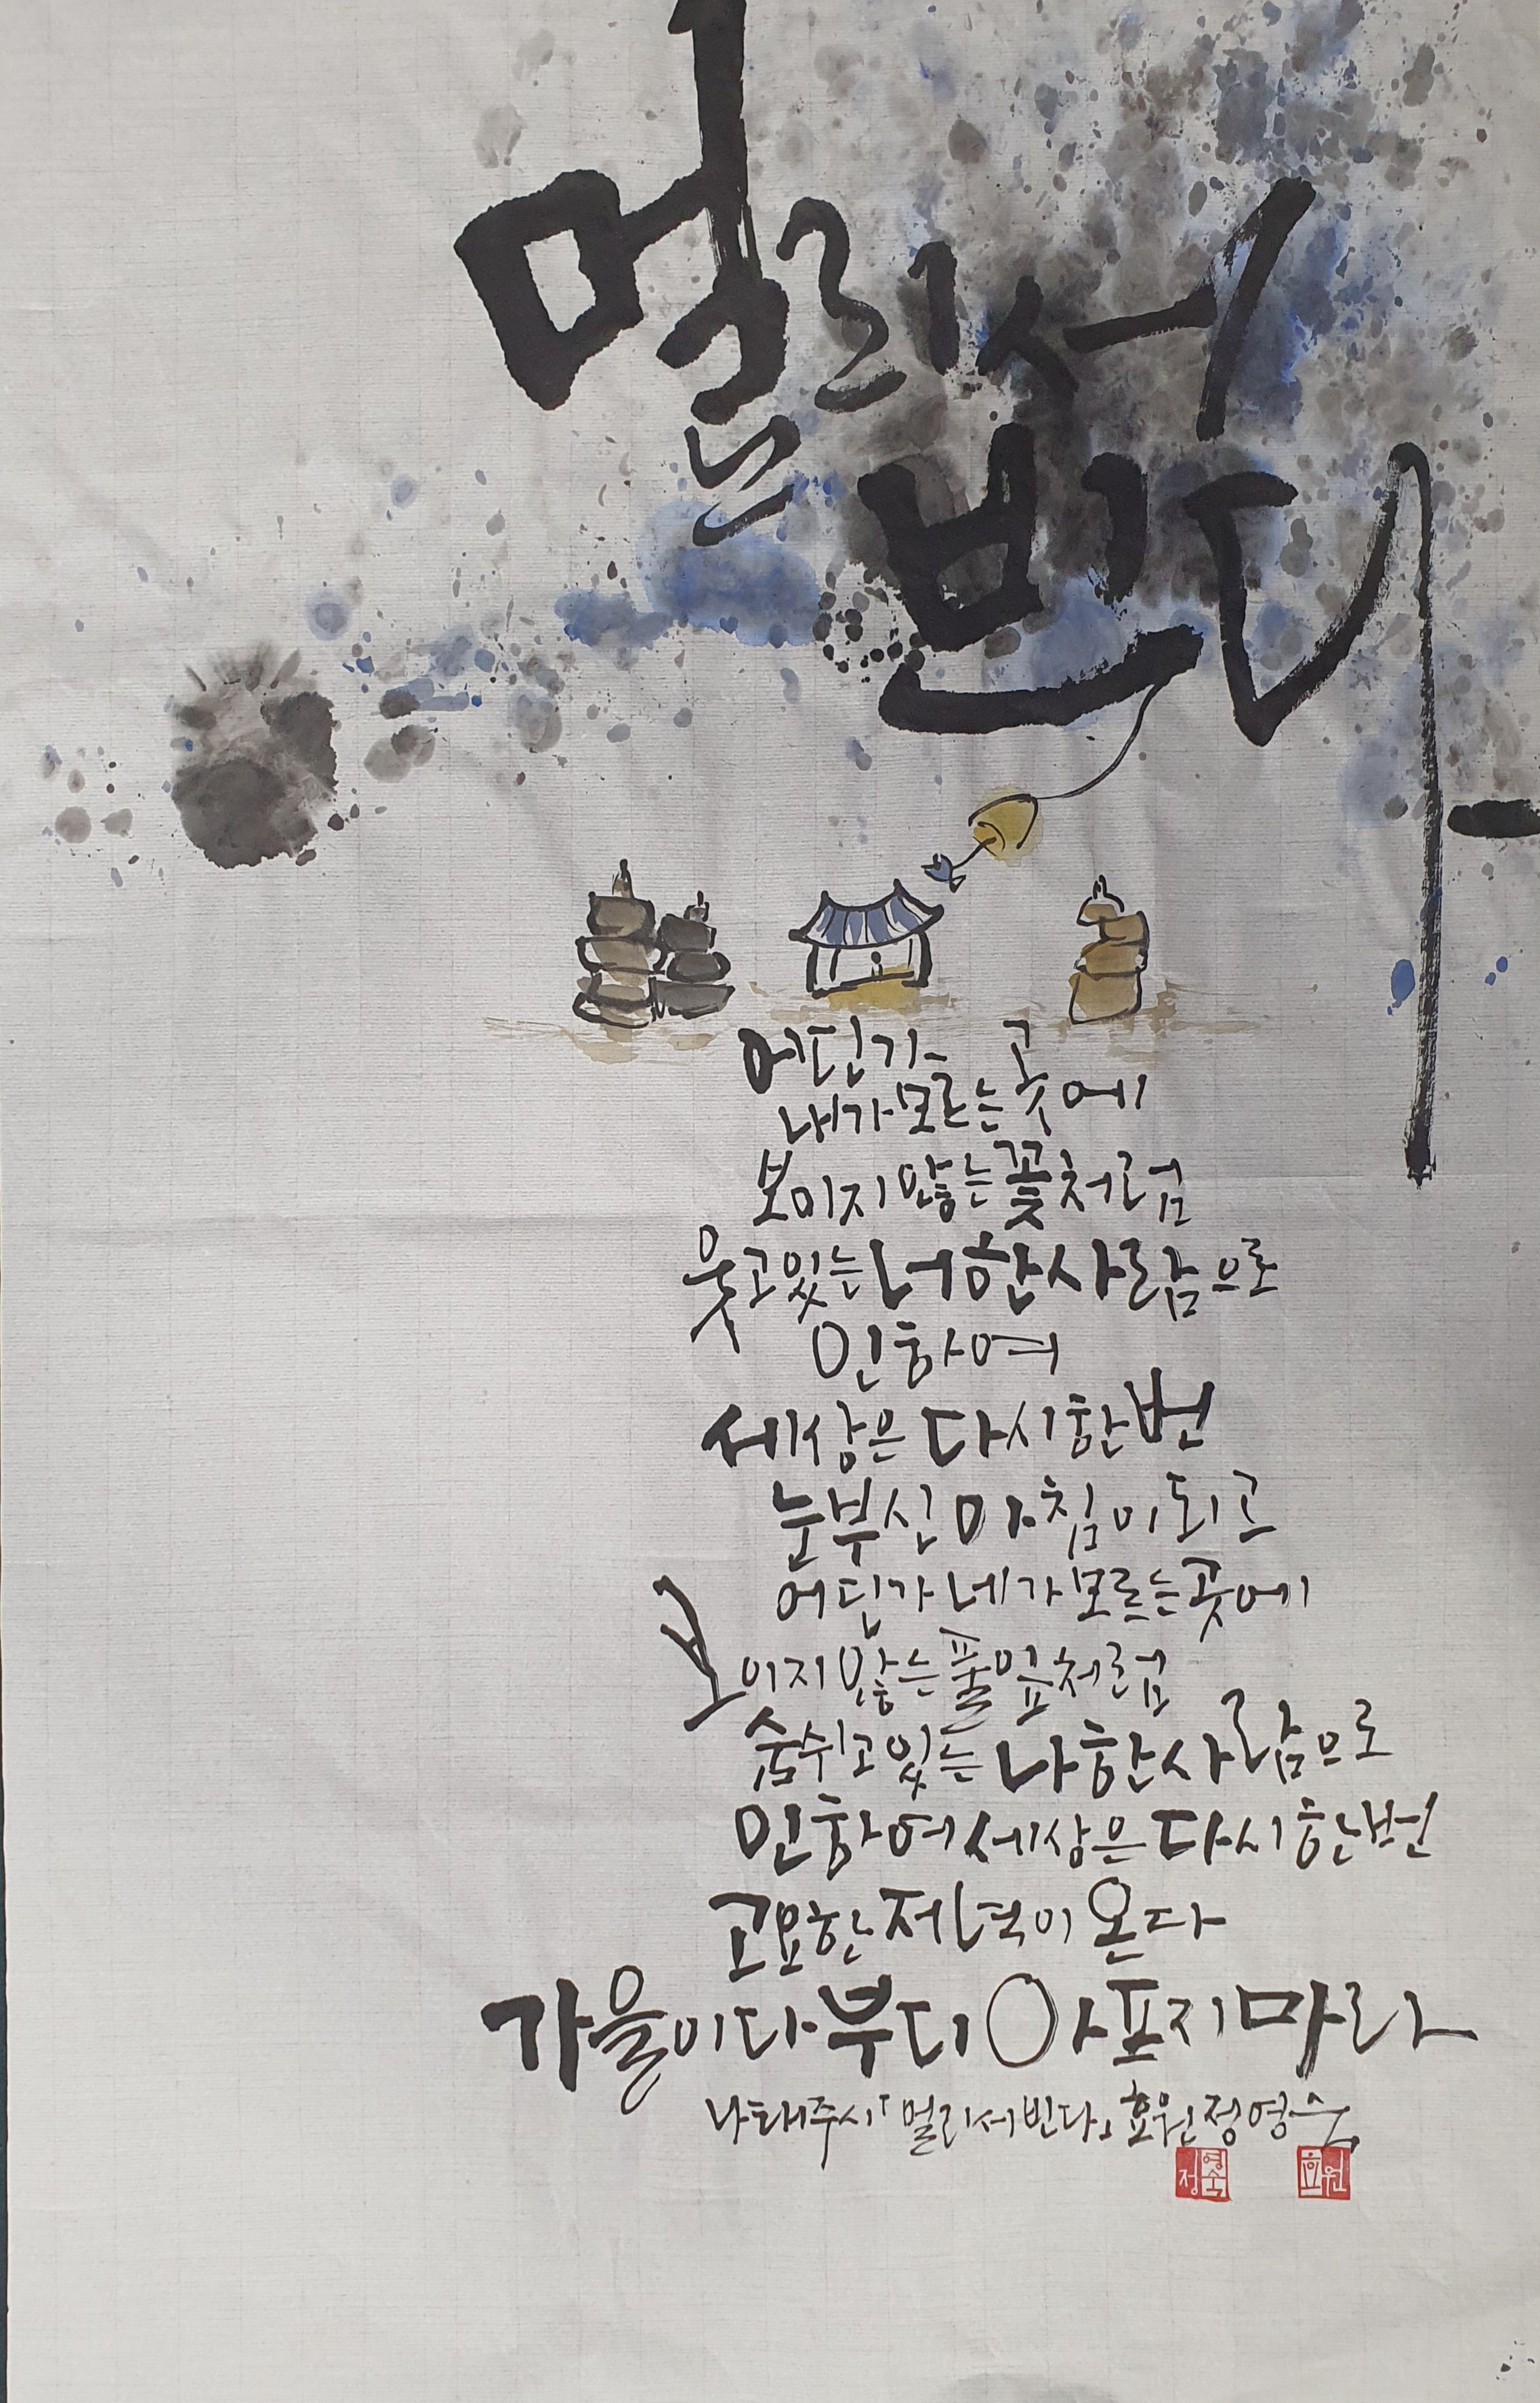 멀리서
빈다
어딘가
내가 모르는 곳에
보이지 않는 꽃처럼
웃고 있는 너 한 사람으로
인하여
세상은 다시 한번
눈부신 아침이 되고
어딘가 네가 모르는 곳에
보이지 않는 풀잎처럼
숨쉬고 있는 나 한 사람으로
인하여 세상은 다시 한번
고요한 저녁이 온다
가을이다 부디 아프지 마라
나태주 시 「멀리서 빈다」 효원 정영숙
정영숙 효원